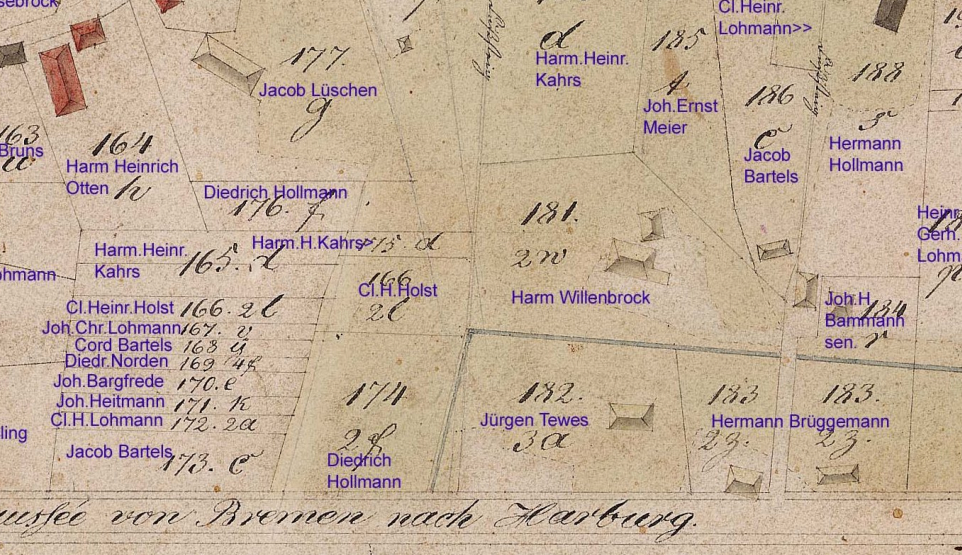 Cl.Heinr.
Lohmann>>
177.
Jacob Lüschen
g
d
Harm.Heinr.
Kahrs
185
t
Joh.Ernst
Meier
186
c
Jacob
Bartels
188
Hermann
Hollmann
163
Bruns
u
164
Harm Heinrich
Otten h
Diedrich Hollmann
176. f
Harm.H.Kahrs>
175 d
Harm.Heinr.
Kahrs 165. d
166
Cl.H.Holst
2l
181.
2w
Harm Willenbrock
Heinr.
Gerh.
Lohm
Joh.H 184
Bammann
sen. r
Cl.Heinr.Holst 166. 2l
Joh.Chr.Lohmann 167. v
Cord Bartels 168 y
Diedr.Norden 169 4f
Joh.Bargfrede 170. e
Joh.Heitmann 171. k
Cl.H.Lohmann 172. 2a
Jacob Bartels 173. c
ling
174
2f
Diedrich
Hollmann
182.
Jürgen Tewes
3a
183 183.
Hermann Brüggemann
2z. 2z.
ussée von Bremen nach Harburg.